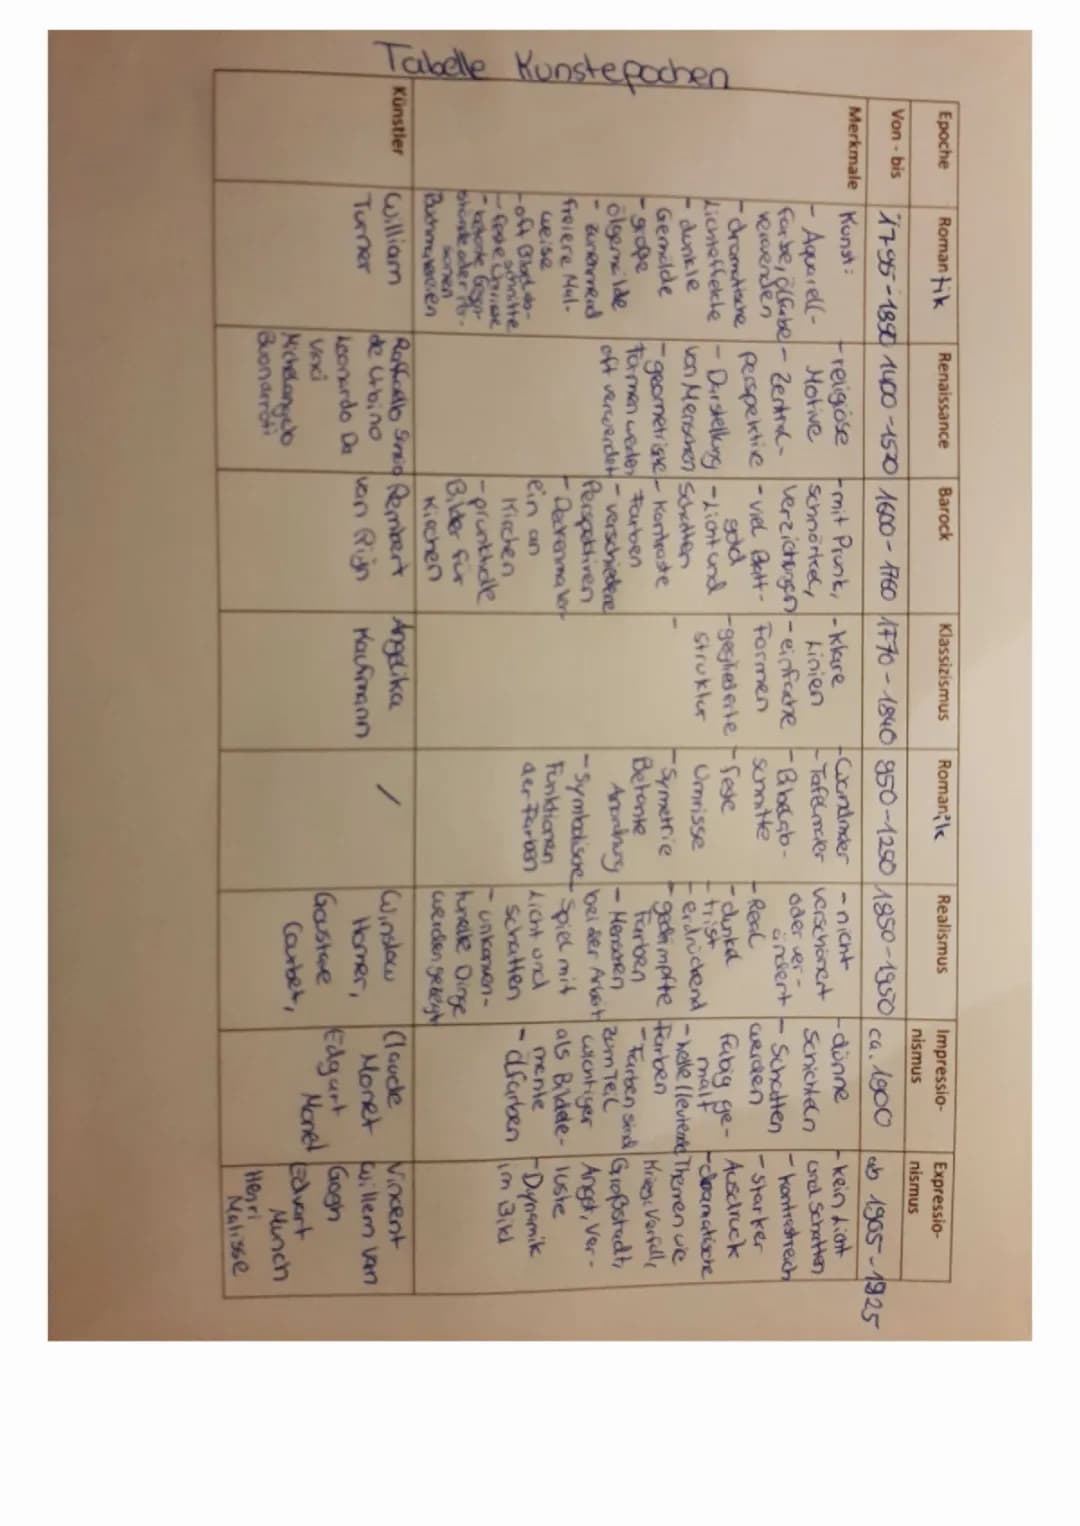 Tabelle Kunstepochen
Epoche
Romantik
Renaissance
Barock
Klassizismus
Romanik
Realismus
Impressio-
nismus
Expressio-
nismus
Von - bis
1795-1850
1400-1520
1600-1760
1770-1840
950-1250
1850-1950
ca. 1900
ab 1905-1925
Merkmale
Kunst:
- Aquarell-
farbe, ölfarbe
verwenden
- dramatische
Lichteffekte
- dunkle
Gemälde
- große
ölgemälde
- zunehmend
freiere Mal-
weise
- oft Bibelab-
schnitte
- feste Umrisse
- betonte Gegen-
stände oder Per-
sonen
Buchmalereien
- religiöse
Motive
- Zentral-
perspektive
- Darstellung
von Menschen
- geometrische
Formen werden
oft verwendet
- mit Prunk,
schnörkel,
verzichungen
- viel Blatt-
gold
- Licht und
Schatten
- Kontraste
Farben
- verschiedene
Perspektiven
- Deckenmaler-
ein an
Kirchen
- prunkholle
Bilder für
Kirchen
- klare
Linien
- einfache
Formen
- gegliederte
struktur
-
- Wandmaler
- Tafelmaler
- Bibelab-
schnitte
- feste
Umrisse
- Symetrie
Betonte
Anordnung
- Symbolische
Funktionen
der Farben
- nicht
verschönert
oder ver-
ändert
- Real
- dunkel
- trist
- erdrückend
- gedämpfte
Farben
- Menschen
bei der Arbeit
- Spiel mit
Licht und
schatten
- unkonven-
tionelle Dinge
werden gezeigt
- dünne
Schichten
- Schatten
werden
fabig ge-
malt
- helle/leutende
Farben
- Farben sind
zum Teil
wichtiger
als Bildele-
mente
- ölfarben
- kein Licht
und schatten
- kontrastreich
- starker
Ausdruck
- dramatische
Themen wie
Krieg, Verfall,
Großstadt,
Angst, Ver-
luste
- Dynamik
im Bild
Künstler
William
Turner
Raffaello
de Urbino
Leonardo Da
Vinci
Michelangelo
Buonarroti
Rembert
van Rijn
Angelika
Kaufmann
/
Winslow
Homer,
Gustave
Courbet,
Claude
Monet
Edguart
Monet
Vincent
Willem van
Gogh
Edvart
Munch
Henri
Matisse